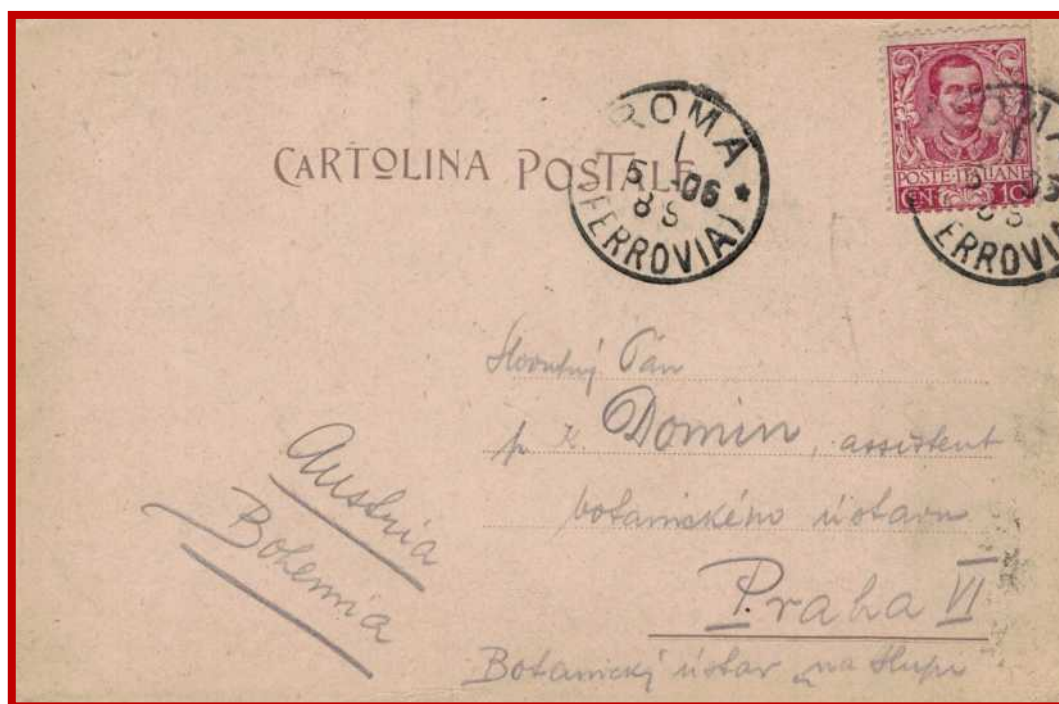 CARTOLINA POSTALE
ROMA
5 -06
8S
(FERROVIA)
POSTE·ITALIANE
CN 10
ROMA
ERROVIA
Slovutný Pán
p. K. Domin, assistent
botanického ústavu
Praha VI
Botanický ústav „na Slupi"
Austria
Bohemia